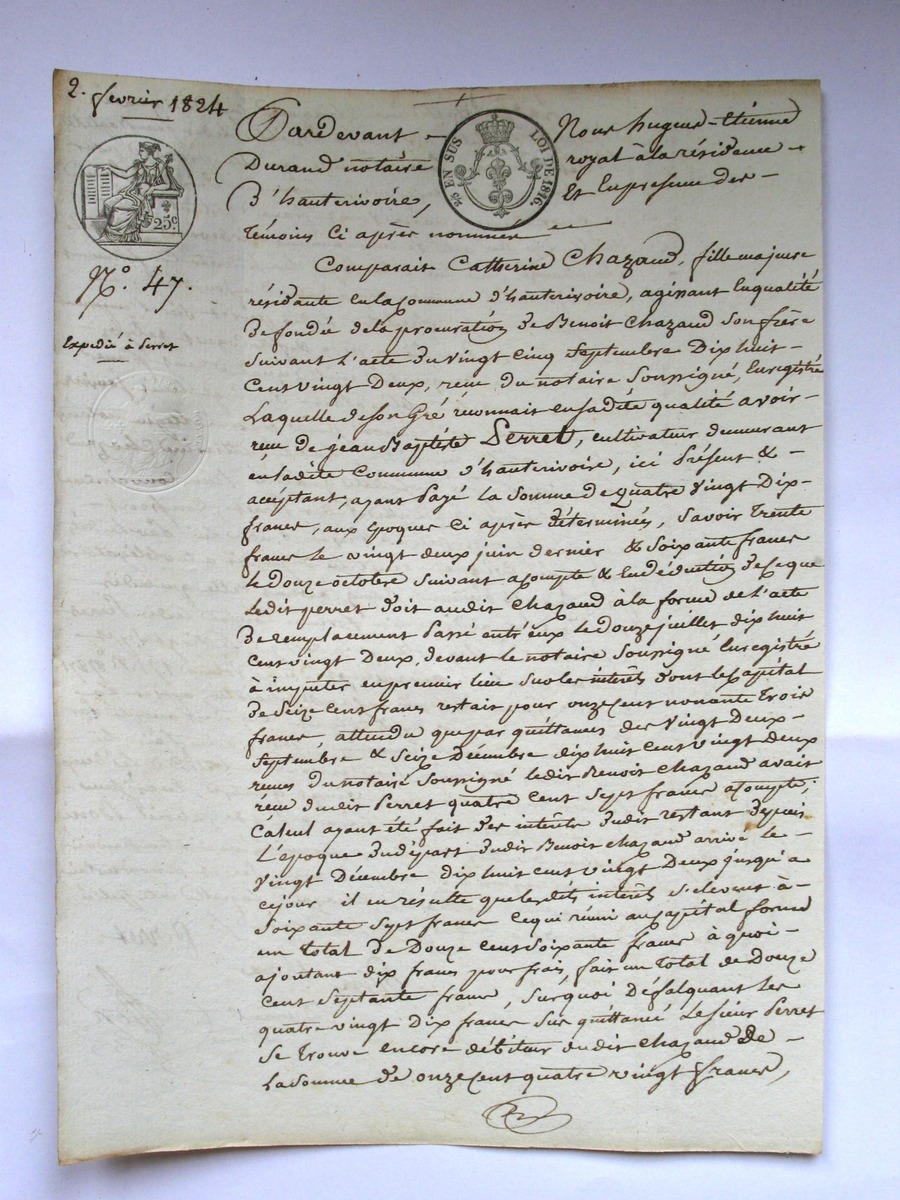 2. fevrier 1824
Pardevant - Nous hugues-étienne
Durand notaire royal à la résidence -
d'hauterivoire, Et Enpresence des -
témoins Ci après nommés
2/5 EN SUS LOI DE 1816.
DROIT
25.c
N.o 47.
Expedié à Perret
Comparait Catherine Chazaud, fille majeure
résidante en la Commune d'hauterivoire, agissant Enqualité
de fondée de la procuration de Benoit Chazaud Son frère
suivant l'acte du vingt cinq Septembre Dix huit-
Cent vingt Deux, reçu du notaire Soussigné, Enregistré
Laquelle de son Gré réconnait ensadite qualité avoir-
reçu de jean Baptiste Perret, cultivateur demeurant
en ladite Commune d'hauterivoire, ici Présent & -
acceptant, ayant Payé la Somme de quatre vingt Dix-
francs, aux époques Ci après déterminées, Savoir Trente
francs le vingt deux juin dernier & Soixante francs
le douze octobre suivant acompte & En déduction de Ceque
Ledit perret doit audit Chazaud à la forme de l'acte
de remplacement Passé entr'eux le Douze juillet dix huit
Cent vingt Deux, devant le notaire Soussigné Enregistré
à imputer en premier lieu Sur les intérêts dont le Capital
de Seize Cent francs restait pour onze cent nonante Trois
francs, attendu que par quittances des Vingt Deux-
Septembre & Seize Décembre dix huit Cent vingt deux
reçues du notaire Soussigné ledit Benoit Chazaud avait
reçu dudit Perret quatre Cent Sept francs acompte;
Calcul ayant été fait des intérêts dudit restant depuis
L'époque du départ dudit Benoit Chazaud arrivé le-
Vingt Décembre dix huit Cent vingt Deux jusqu'a
cejour il en résulte que lesdits intérêts S'elevent à-
Soixante Sept francs Cequi réuni au Capital forme
un total de Douze Cent Soixante francs à quoi-
ajoutant dix francs pour frais, fait un Total de Douze
Cent Septante francs, Surquoi défalquant les
quatre vingt Dix francs Sus quittancés Le Sieur Perret
Se Trouve encore débiteur dudit Chazaud De -
La Somme de onze Cent quatre vingt francs,